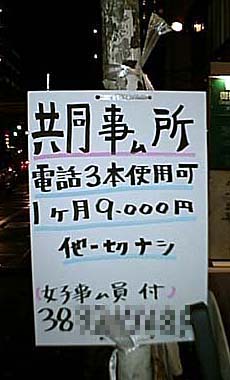 共同事ム所
電話3本使用可
1ヶ月9.000円
他一セクナシ
(女子事ム員付)
38